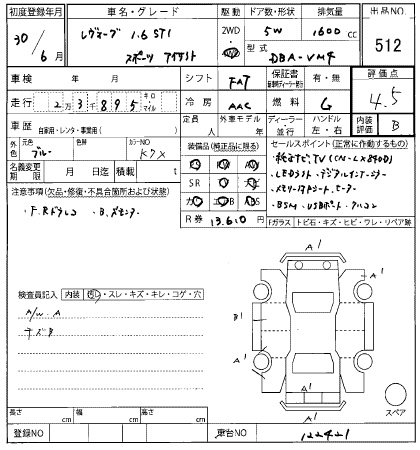 初度登録年月 車名・グレード 駆動 ドア数・形状 排気量 出品NO
30年 6月 レヴォーグ 1.6 STI スポーツ アイサイト 2WD 4WD 5W 1600cc 512
型式 DBA-VM4
車検 年 月 シフト FAT 保証書 有・無 評価点 4.5
走行 2万3千895 キロ・マイル 冷房 AAC 燃料 G
車歴 自家用・レンタ・事業用( ) 定員 人 外車モデル 年 ディーラー・並行 ハンドル 左・右 内装評価 B
外色 元色 ブルー 色替 カラーNO K7X
装備品(純正品に限る) セールスポイント(正常に作動するもの)
名義変更期限 月 日迄 積載 t
SR
R券 13,610円
・純正ナビTV(CN-LX890D)
・LEDライト・デジタルインナーミラー
・メモリー付シート・ヒーター
・BSM・USBポート・アルコン
注意事項(欠品・修復・不具合箇所および状態)
・F.Rドラレコ ・B.カモンナー
Fガラス トビ石・キズ・ヒビ・ワレ・リペア跡
A1
A1
検査員記入 内装 汚レ・スレ・キズ・キレ・コゲ・穴
A/W.A
キズB
B1
A1
A1
A1
スペア
長さ cm 幅 cm 高さ cm
登録NO 車台NO 122421